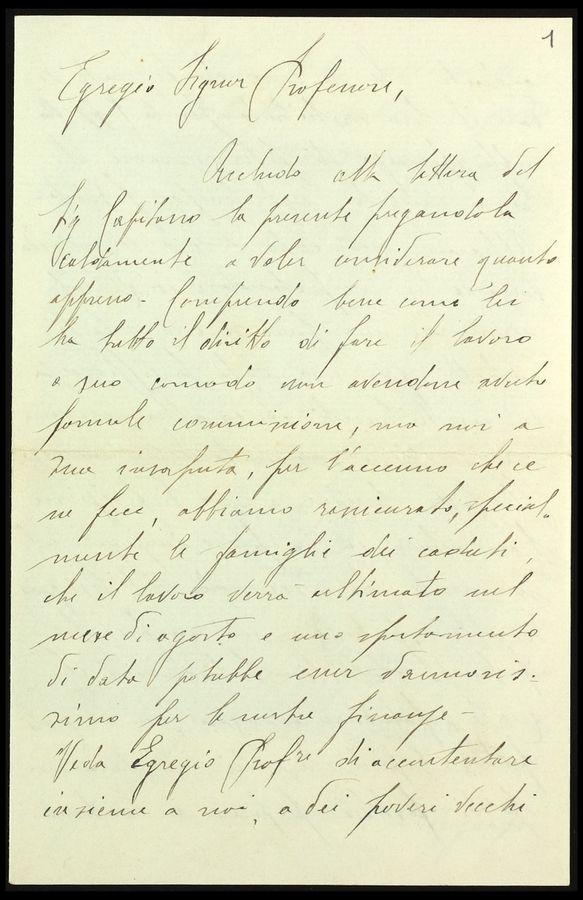 1
Egregio Signor Professore,
Acchiudo alla lettera del
Sig Capitano la presente pregandola
caldamente a voler considerare quanto
appresso - Comprendo bene come lei
ha tutto il diritto di fare il lavoro
a suo comodo non avendone avuto
formale commissione, ma noi a
sua insaputa, per l'accenno che ce
ne fece, abbiamo rassicurato, special-
mente le famiglie dei caduti,
che il lavoro verrà ultimato nel
mese di agosto e uno spostamento
di data potrebbe esser dannosis-
simo per le nostre finanze -
Veda Egregio Profre di accontentare
insieme a noi, a dei poveri vecchi